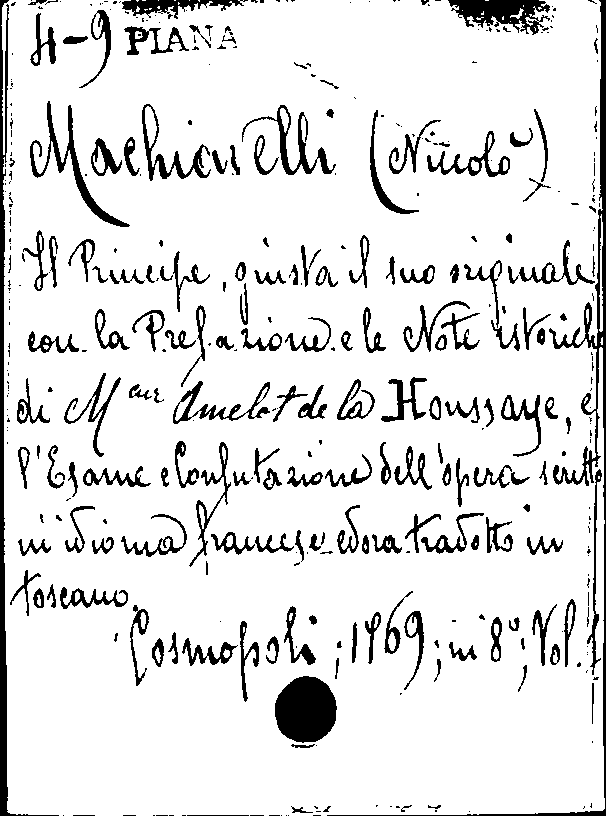 4-9 PIANA
Machiavelli (Niccolò)
Il Principe, giusta il suo originale
con la Prefazione e le Note istoriche
di M.eur Amelot de la Houssaye, e
l'Esame e Confutazione dell'opera scritto
in idioma francese ed ora tradotto in
toscano.
Cosmopoli; 1769; in 8°; Vol. 1